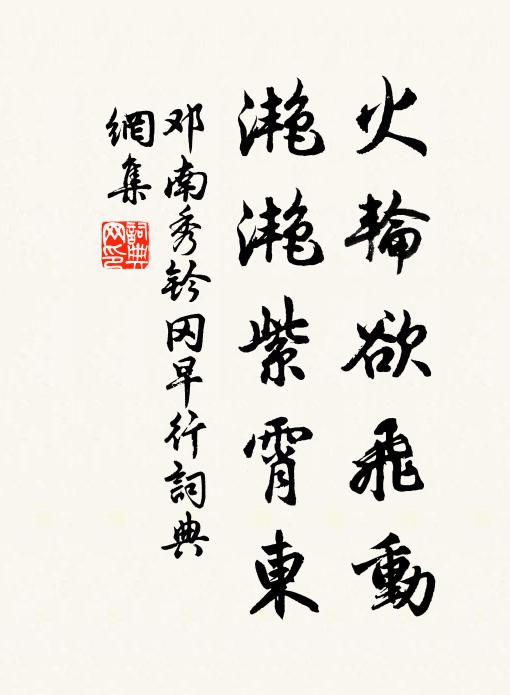 火輪欲飛動
灔灔紫霄東
邓南秀钤冈早行詞典
網集
詞典网印